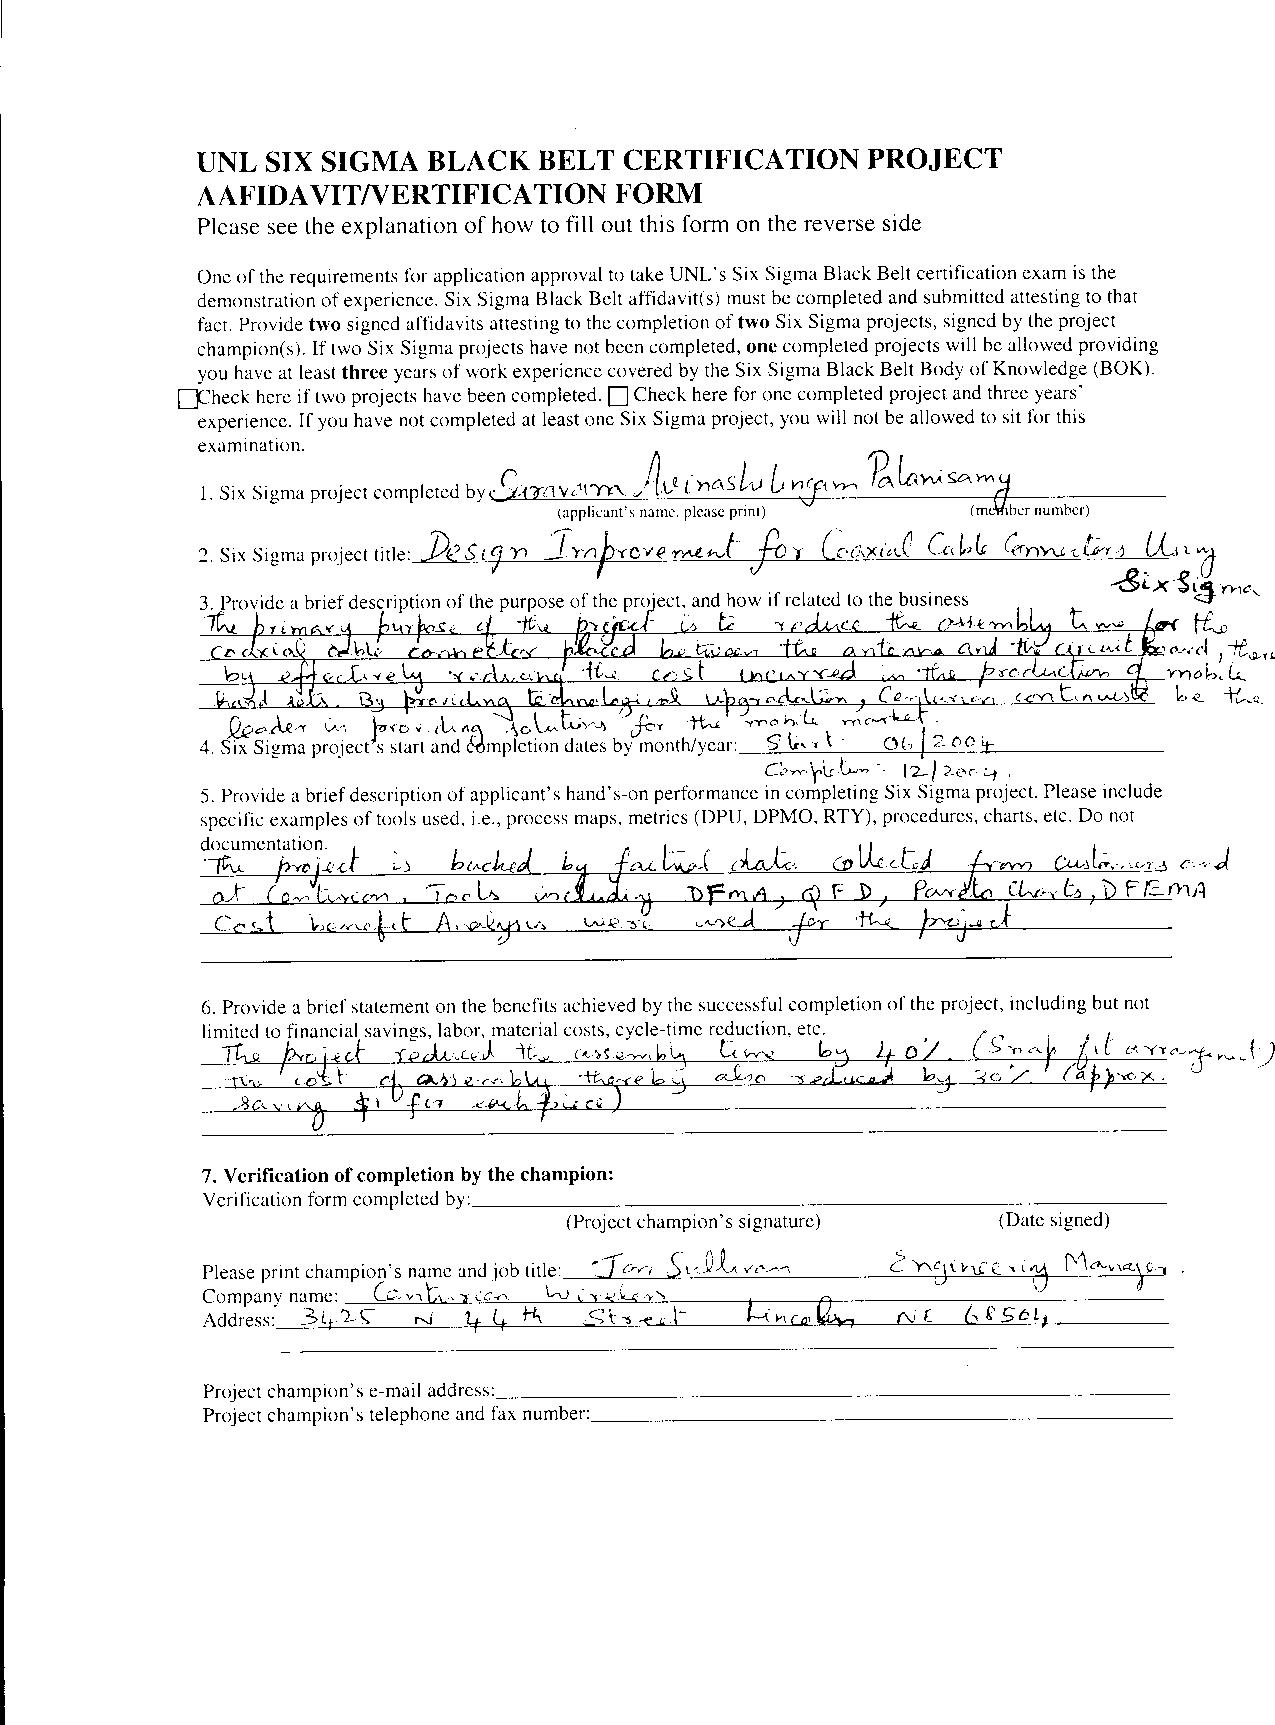 UNL SIX SIGMA BLACK BELT CERTIFICATION PROJECT
AAFIDAVIT/VERTIFICATION FORM
Please see the explanation of how to fill out this form on the reverse side
One of the requirements for application approval to take UNL's Six Sigma Black Belt certification exam is the
demonstration of experience. Six Sigma Black Belt affidavit(s) must be completed and submitted attesting to that
fact. Provide two signed affidavits attesting to the completion of two Six Sigma projects, signed by the project
champion(s). If two Six Sigma projects have not been completed, one completed projects will be allowed providing
you have at least three years of work experience covered by the Six Sigma Black Belt Body of Knowledge (BOK).
Check here if two projects have been completed. Check here for one completed project and three years'
experience. If you have not completed at least one Six Sigma project, you will not be allowed to sit for this
examination.
1. Six Sigma project completed by Saravanan Avinashilingam Palanisamy
(applicant's name, please print) (member number)
2. Six Sigma project title: Design Improvement for Coaxial Cable Connectors Using
Six Sigma
3. Provide a brief description of the purpose of the project, and how if related to the business
The primary purpose of the project is to reduce the assembly time for the
coaxial cable connector placed between the antenna and the circuit board, there
by effectively reducing the cost incurred in the production of mobile
hand sets. By providing technological upgradation, Centurion continues to be the
leader in providing solutions for the mobile market.
4. Six Sigma project's start and completion dates by month/year: Start - 06/2004
Completion - 12/2004.
5. Provide a brief description of applicant's hand's-on performance in completing Six Sigma project. Please include
specific examples of tools used, i.e., process maps, metrics (DPU, DPMO, RTY), procedures, charts, etc. Do not
documentation.
The project is backed by factual data collected from customers and
at Centurion. Tools including DFMA, QFD, Pareto Charts, DFEMA
Cost benefit Analysis were used for the project
6. Provide a brief statement on the benefits achieved by the successful completion of the project, including but not
limited to financial savings, labor, material costs, cycle-time reduction, etc.
The project reduced the assembly time by 40%. (Snap fit arrangement)
the cost of assembly thereby also reduced by 30% (approx.
saving $1 for each piece)
7. Verification of completion by the champion:
Verification form completed by:
(Project champion's signature) (Date signed)
Please print champion's name and job title: Sullivan Engineering Manager.
Company name: Centurion Wireless
Address: 3425 N 44th Street Lincoln NE 68504
Project champion's e-mail address:
Project champion's telephone and fax number: